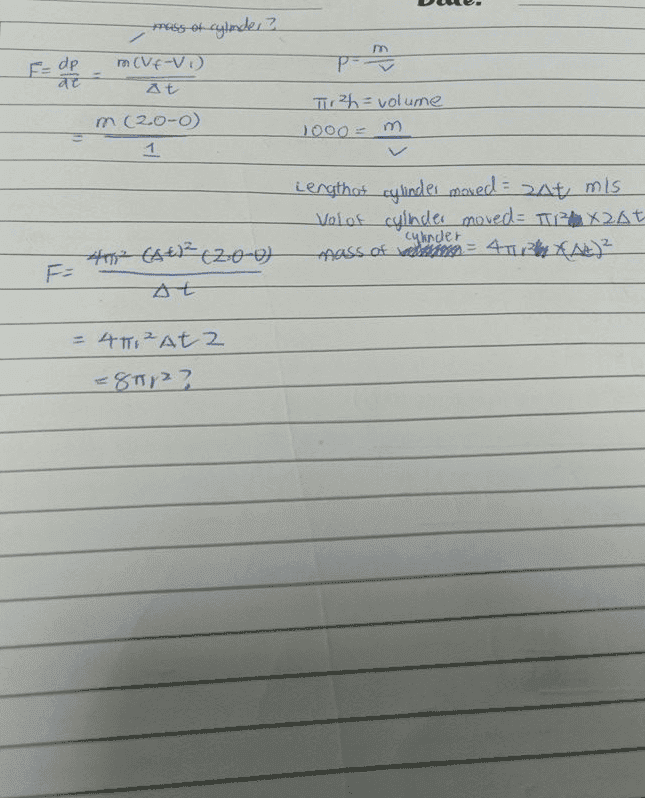 Date:
mass of cylinder?
F = dp/dt = m(Vf-Vi)/Δt
= m(2.0-0)/1
ρ = m/v
πr²h = volume
1000 = m/v
Length of cylinder moved = 2Δt m/s
Vol of cylinder moved = πr² × 2Δt
mass of cylinder = 4πr² × (Δt)²
F = 4πr² (Δt)² (2.0-0)/Δt
= 4πr² Δt 2
= 8πr²?